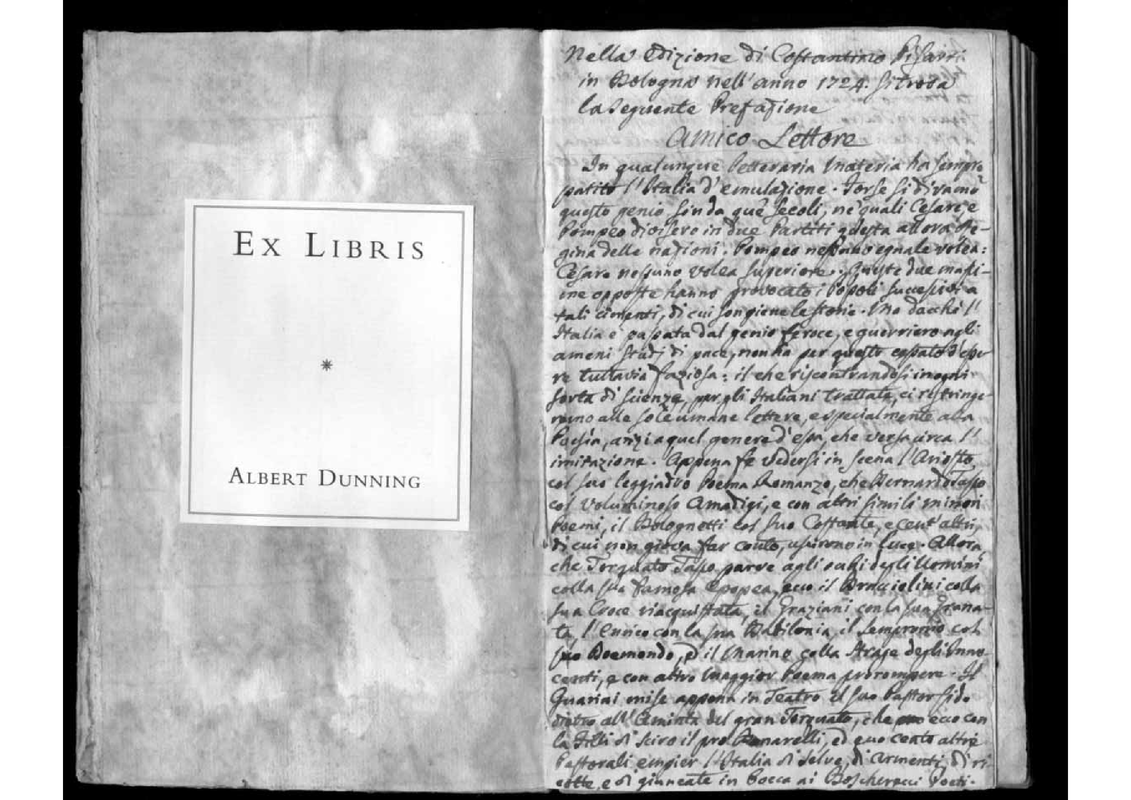 EX LIBRIS
*
ALBERT DUNNING
Nella Edizione di Costantino Pisarri
in Bologna nell'anno 1724. si trova
la seguente Prefazione
Amico Lettore
In qualunque letteraria materia ha sempre
patito l'Italia d'emulazione. Forse si diramò
questo genio sin da que' secoli, ne' quali Cesare, e
Pompeo divisero in due Partiti questa allora Re-
gina delle nazioni. Pompeo nessuno eguale volea:
Cesare nessuno volea superiore. Queste due massi-
me opposte hanno provocato i Popoli successivi a
tali cimenti, di cui son piene le storie. Ma dacchè l'
Italia è passata dal genio feroce, e guerriero agli
ameni studj di pace, non ha per questo cessato d'esse-
re tuttavia faziosa: il che riscontrandosi in ogni
sorta di scienze, per gli Italiani trattata, ci restringe-
remo alle sole umane lettere, e specialmente alla
Poesia, anzi a quel genere d'essa, che versa circa l'
imitazione. Appena fe vedersi in scena l'Ariosto
col suo leggiadro Poema Romanzo, che Bernardo Tasso
col voluminoso Amadigi, e con altri simili minori
Poemi, il Bolognetti col suo Costante, e cent'altri,
di cui non giova far conto, usirono in luce. Allora
che Torquato Tasso parve agli occhi degli Uomini
colla sua famosa Epopea, ecco il Bracciolini colla
sua Croce riacquistata, il Graziani con la sua Grana-
ta, l'Enrico con la sua Babilonia, il Sempronio col
suo Boemondo, ed il Marino colla Strage degli Inno-
centi, e con altro maggior Poema prorompere. Il
Guarini mise appena in Teatro il suo Pastor fido
dietro all'Aminta del gran Torquato, che ecco con
la Filli di Sciro il pro Bonarelli, ed ecco cento altri
Pastorali empier l'Italia di selve, di Armenti, di ri-
cotte, e di giuncate in bocca ai Boscherecci Poeti-